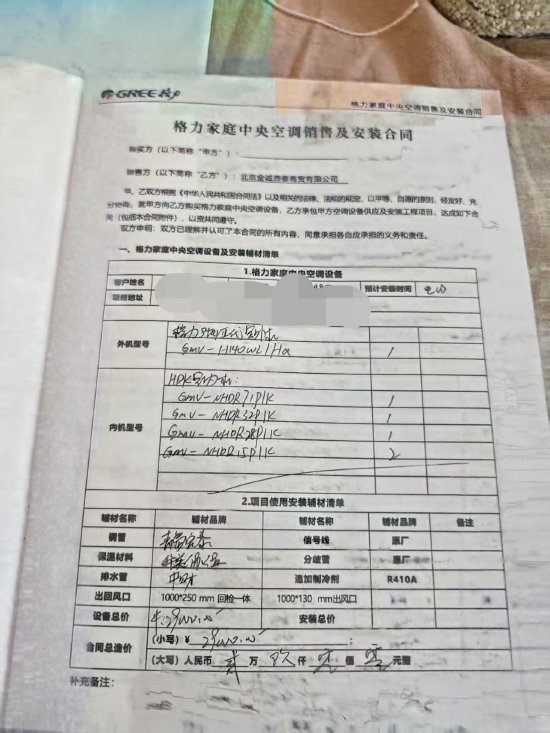 GREE 格力
格力家庭中央空调销售及安装合同
格力家庭中央空调销售及安装合同
购买方（以下简称“甲方”）：
销售方（以下简称“乙方”）： 北京金诚鼎泰商贸有限公司
甲、乙双方根据《中华人民共和国合同法》以及相关的法律、法规的规定，以平等、自愿的原则，经友好、充
分协商，就甲方向乙方购买格力家庭中央空调设备，乙方承包甲方空调设备供应及安装工程项目，达成如下合
同（包括本合同附件），以资共同遵守。
双方申明：双方已理解并认可了本合同的所有内容，同意承担各自应承担的义务和责任。
一、格力家庭中央空调设备及安装辅材清单
1.格力家庭中央空调设备
客户姓名 预计安装时间
地址
外机型号 格力
GMV-H140WL/Ha 1
内机型号
GMV-NHDR71P/K 1
GMV-NHDR32P/K 1
GMV-NHDR28P/K 1
GMV-NHDR15P/K 2
2.项目使用安装辅材清单
辅材名称 辅材品牌 辅材名称 辅材品牌 备注
铜管 信号线 原厂
保温材料 分歧管 原厂
排水管 中财 追加制冷剂 R410A
出回风口 1000*250 mm 回检一体 1000*130 mm出风口
设备总价 安装总价
合同总造价 (小写) ¥
(大写) 人民币 贰 万 玖 仟 零 佰 零 元整
补充备注：